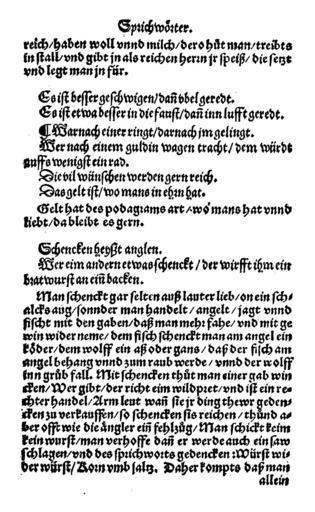 Sprichwörter.
reich/haben woll vnnd milch/der o hüt man/treibts
in stall/vnd gibt jn als reichen herrn jr speiß/die setzt
vnd legt man jn für.
Es ist besser geschwigen/dañ vbel geredt.
Es ist etwa besser in die faust/dañ iñ lufft geredt.
¶ Warnach einer ringt/darnach jm gelingt.
Wer nach einem guldin wagen tracht/dem würdt
auffs wenigst ein rad.
Die vil wünschen werden gern reich.
Das gelt ist/wo mans in ehrn hat.
Gelt hat des podagrams art/wo mans hat vnnd
liebt/da bleibt es gern.
Schencken heyßt anglen.
Wer eim andern etwas schenckt/der wirfft ihm ein
bratwurst an eiñ backen.
Man schenckt gar selten auß lauter lieb/on ein sch-
alcks aug/sonnder man handelt/angelt/jagt vnnd
fischt mit den gaben/daß man mehr fahe/vnd mit ge
win wider neme/dem fisch schenckt man am angel ein
köder/dem wolff ein aß oder gans/daß der fisch am
angel behang vnnd zum raub werde/vnnd der wolff
inn grůb fall. Mit schencken thůt man einer gab win
cken/Wer gibt/der richt eim wildpret/vnd ist ein re-
chter handel/Arm leut wañ sie jr ding thewr geden-
cken zu verkauffen/so schencken sis reichen/thůnd a-
ber offt wie die ängler eiñ fehlzüg/Man schickt keim
kein wurst/man verhoffe dañ er werde auch ein saw
schlagen/vnd des sprichworts gedencken: Würst wi-
der würst/Korn vmb saltz. Daher kompts daß man
allein